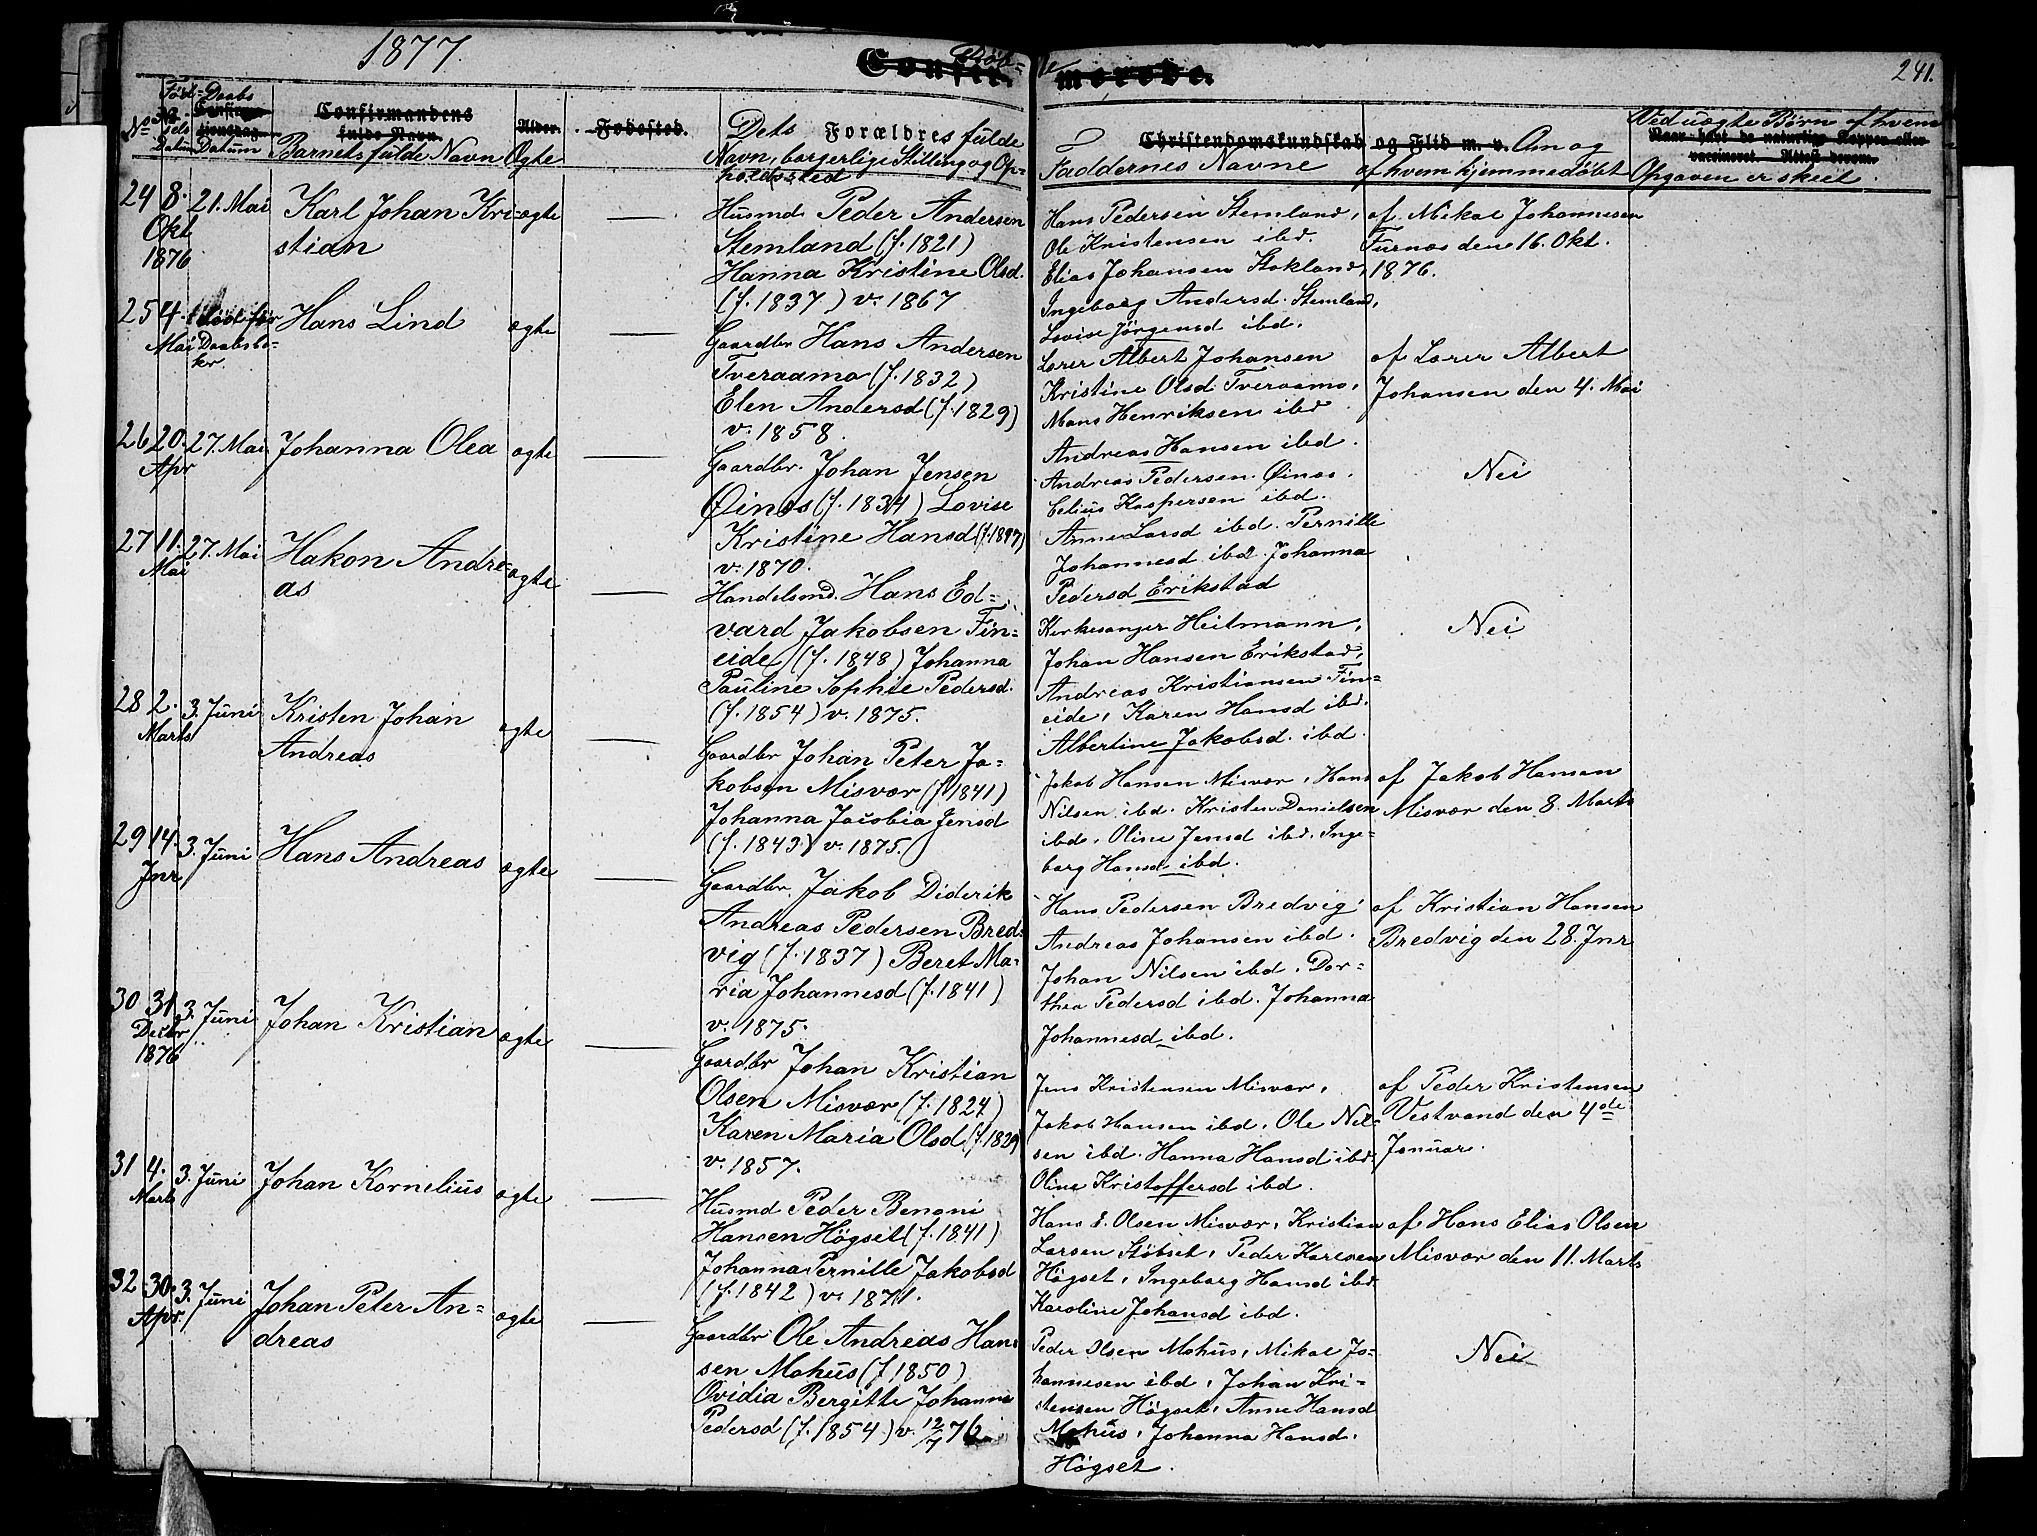 1877.
Döb=
te
Confir=
merede.
241.
No
Föd=
sels
Datum
Daabs
Datum
Confirmandens
fulde Navn.
Barnets fulde Navn
Alder.
Ægte
Fødested.
Dets Forældres fulde
Navn, borgerlige Stilling og Op=
holdssted
Christendomskundskab og Flid m. v. Om og
Faddernes Navne
af hvem hjemmedøbt
Ved uægte Børn af hvem
Opgaven er skeet.
24
8.
Okt
1876
21. Mai
Karl Johan Kri=
stian
ægte
Husmd Peder Andersen
Stemland (f. 1821)
Hanna Kristine Olsd.
(f. 1837) v. 1867
Hans Pedersen Stemland,
Ole Kristensen ibd.
Elias Johansen Stokland,
Ingeborg Andersd. Stemland,
Lovise Jörgensd ibd.
af Mikal Johannesen
Furnæs den 16. Okt.
1876.
25
4.
Mai
död för
Daabsbe=
kr.
Hans Lind
ægte
Gaardbr Hans Andersen
Tveraamo (f. 1832)
Elen Andersd (f. 1829)
v. 1858.
Lærer Albert Johansen
Kristine Olsd Tveraamo,
Mons Henriksen ibd
Andreas Hansen ibd.
af Lærer Albert
Johansen den 4. Mai
26
20.
Apr
27. Mai
Johanna Olea
ægte
Gaardbr. Johan Jensen
Øinæs (f. 1834) Lovise
Kristine Hansd (f. 1847)
v. 1870.
Andreas Pedersen Øinæs.
Celius Kaspersen ibd.
Anne Larsd ibd. Pernille
Johannesd ibd. Johanna
Pedersd Erikstad
Nei
27
11.
Mai
27. Mai
Hakon Andre=
as
ægte
Handelsmd. Hans Ed=
vard Jakobsen Fin=
eide (f. 1848) Johanna
Pauline Sophie Pedersd.
(f. 1854) v. 1875.
Kirkesanger Heitmann,
Johan Hansen Erikstad,
Andreas Kristiansen Fin=
eide, Karen Hansd ibd.
Albertine Jakobsd. ibd.
Nei
28
2.
Marts
3. Juni
Kristen Johan
Andreas
ægte
Gaardbr Johan Peter Ja=
kobsen Misvær (f. 1841)
Johanna Jacobia Jensd
(f. 1843) v. 1875.
Jakob Hansen Misvær, Hans
Nilsen ibd. Kristen Danielsen
ibd, Oline Jensd ibd. Inge=
borg Hansd ibd.
af Jakob Hansen
Misvær den 8. Marts
29
14.
Jnr
3. Juni
Hans Andreas
ægte
Gaardbr. Jakob Diderik
Andreas Pedersen Bred=
vig (f. 1837) Beret Ma=
ria Johannesd (f. 1841)
v. 1875.
Hans Pedersen Bredvig,
Andreas Johansen ibd.
Johan Nilsen ibd. Dor=
thea Pedersd ibd. Johanna
Johannesd ibd.
af Kristian Hansen
Bredvig den 28. Jnr
30
31.
Decbr
1876
3. Juni
Johan Kristian
ægte
Gaardbr Johan Kristian
Olsen Misvær (f. 1824)
Karen Maria Olsd (f. 1829)
v. 1857.
Jens Kristensen Misvær,
Jakob Hansen ibd, Ole Nil=
sen ibd. Hanna Hansd ibd
Oline Kristoffersd ibd.
af Peder Kristensen
Vestvand den 4de
Januar.
31
4.
Marts
3. Juni
Johan Kornelius
ægte
Husmd Peder Benoni
Hansen Högset (f. 1841)
Johanna Pernille Jakobsd
(f. 1842) v. 1871.
Hans E. Olsen Misvær, Kristian
Larsen Stöbset, Peder Karlsen
Högset, Ingeborg Hansd ibd
Karoline Johansd ibd.
af Hans Elias Olsen
Misvær den 11. Marts
32
30.
Apr.
3. Juni
Johan Peter An=
dreas
ægte
Gaardbr Ole Andreas Han=
sen Mohus (f. 1850)
Ovidia Bergitte Johanna
Pedersd (f. 1854) v. 12/7 76
Peder Olsen Mohus, Mikal Jo=
hannesen ibd, Johan Kri=
stensen Högset, Anne Hansd
Mohus, Johanna Hansd.
Högset.
Nei